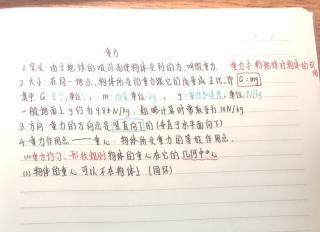 重力
1. 定义：由于地球的吸引而使物体受到的力，叫做重力. 重力≠物地球对物体的吸引
2. 大小：在同一地点，物体所受的重力跟它的质量成正比，即 G=mg
其中 G: 重力，单位N， m: 质量 单位:kg， g: 重力加速度，单位:N/kg
一般地面上g约为9.8N/kg. 粗略计算时常取g为10N/kg
3. 方向：重力的方向总是竖直向下的 (垂直于水平面向下)
4. 重力作用点——重心：物体所受重力的等效作用点.
(1) 重力均匀、形状规则物体的重心在它的几何中心
(2) 物体的重心可以不在物体上 (圆环)